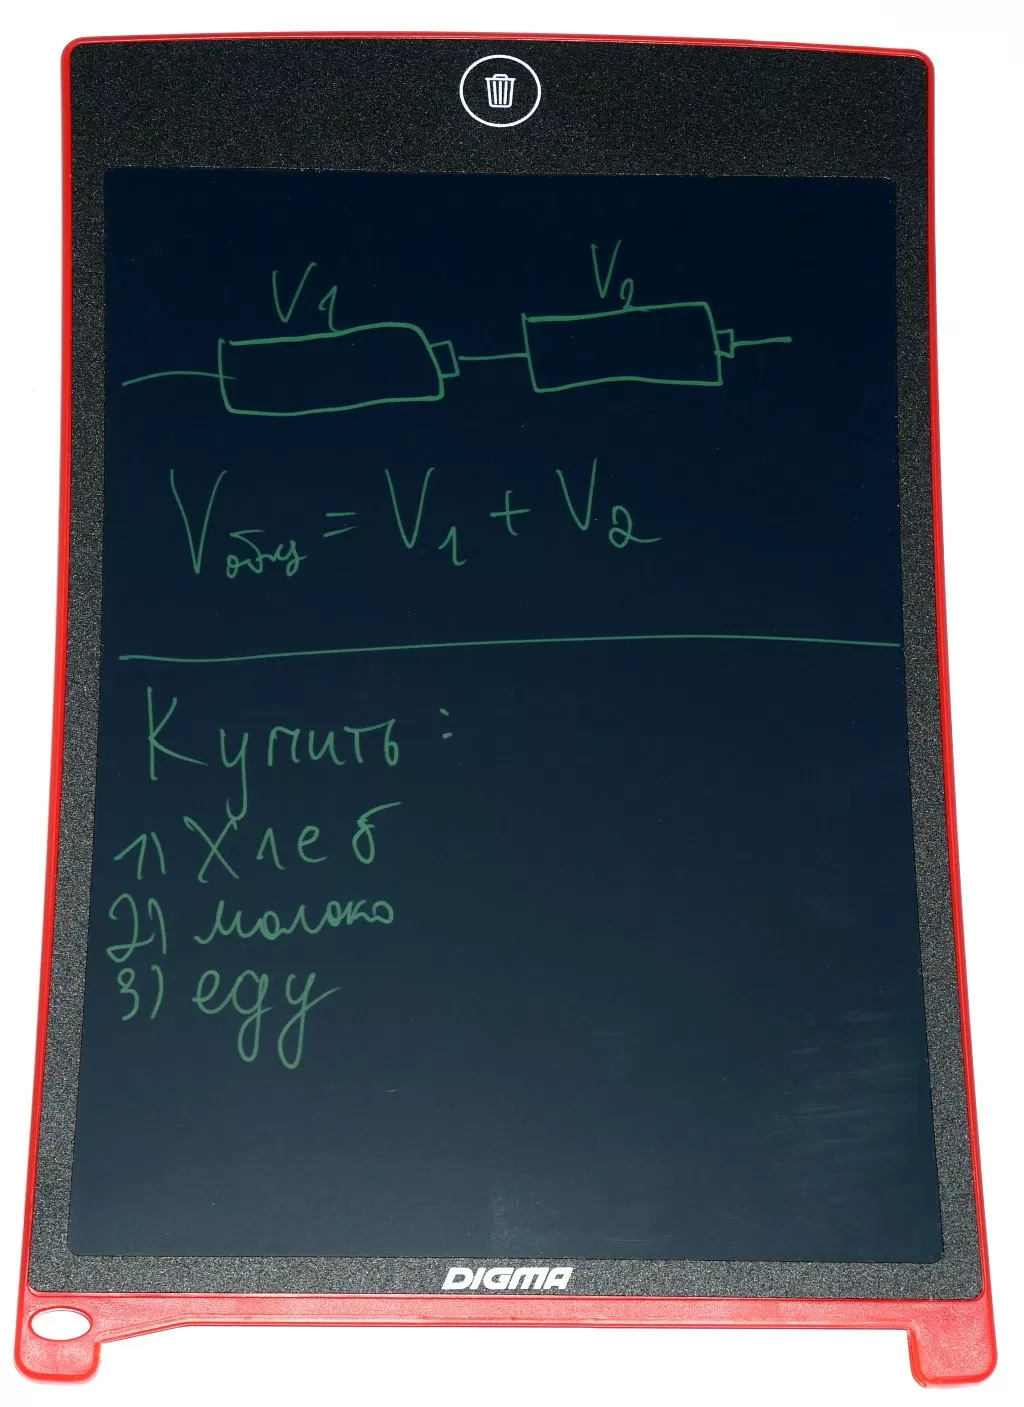 V1 V2
Vобщ = V1 + V2
Купить :
1) Хлеб
2) молоко
3) еду
DIGMA